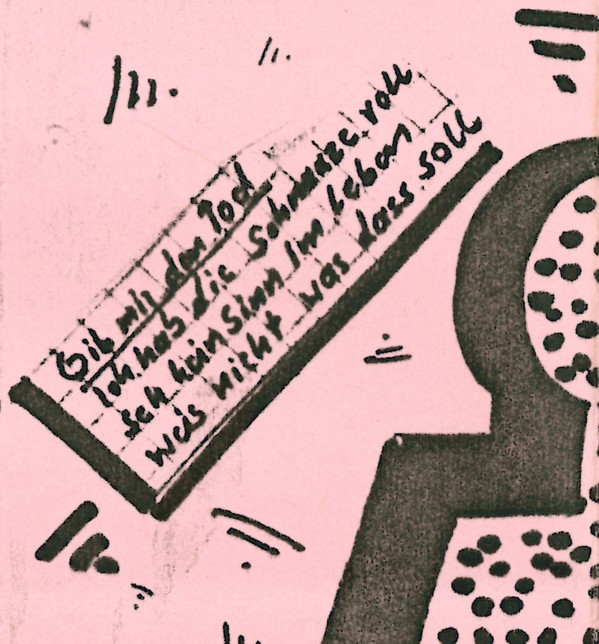 Gib mir den Tod
Ich hab die Schnauze voll
seh kein Sinn im Leben
weis nicht was dass soll